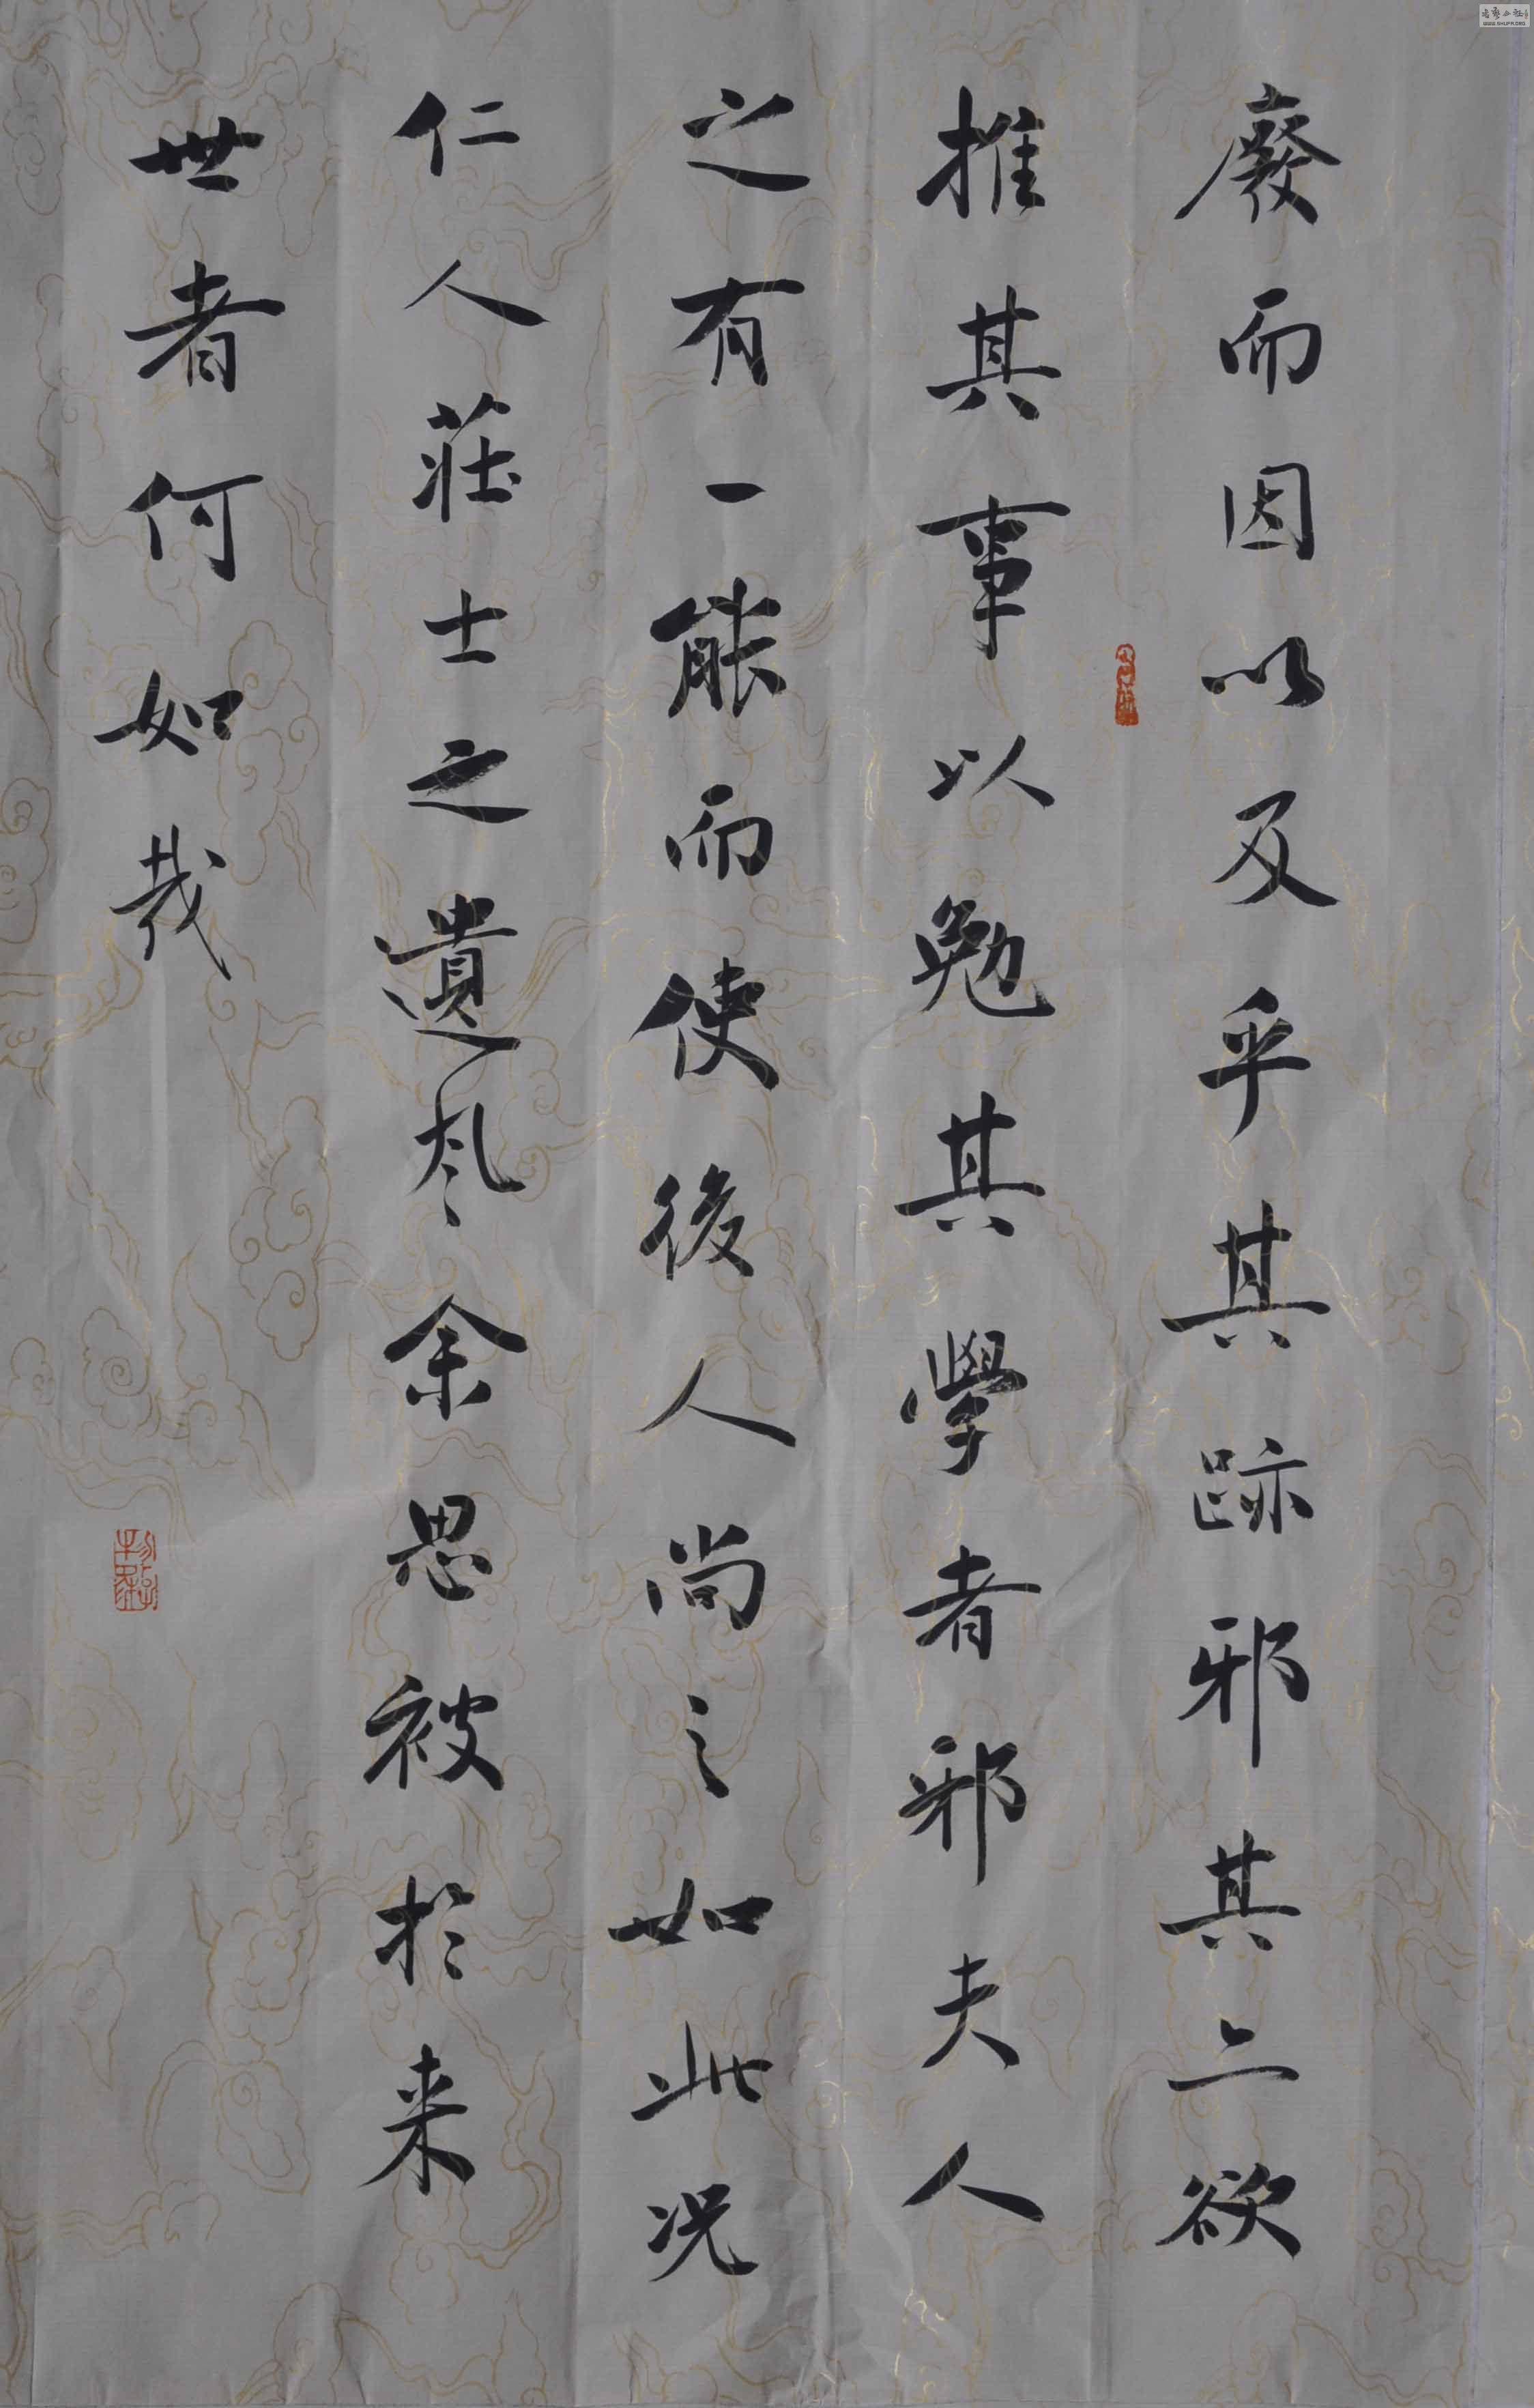 廢而因以及乎其跡邪其亦欲
推其事以勉其學者邪夫人
之有一能而使後人尚之如此况
仁人莊士之遺風余思被於来
世者何如哉
WWW.SHUFA.ORG